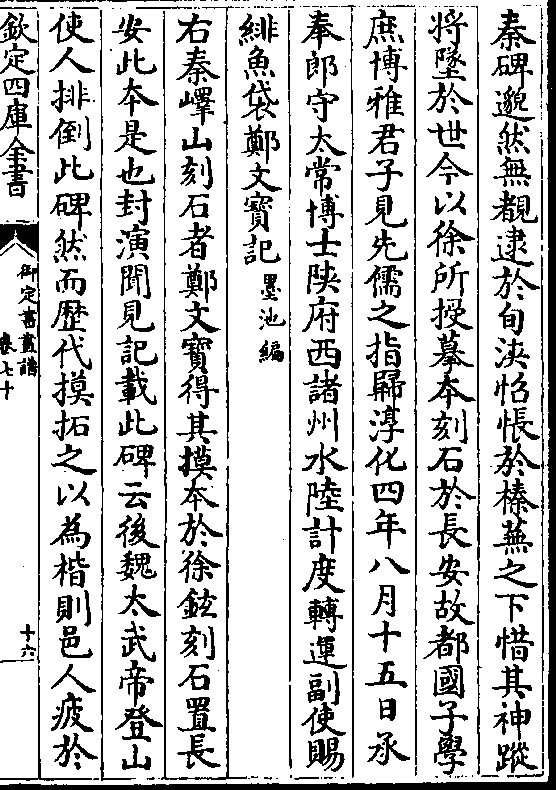 秦碑邈然無覩逮於旬浹怊悵於榛蕪之下惜其神蹤
將墜於世今以徐所授摹本刻石於長安故都國子學
庶博雅君子見先儒之指歸淳化四年八月十五日承
奉郎守太常博士陝府西諸州水陸計度轉運副使賜
緋魚袋鄭文寶記墨池編
右秦嶧山刻石者鄭文寶得其摸本於徐鉉刻石置長
安此本是也封演聞見記載此碑云後魏太武帝登山
使人排倒此碑然而歷代摸拓之以為楷則邑人疲於
欽定四庫全書
御定書畫譜
卷七十
十六